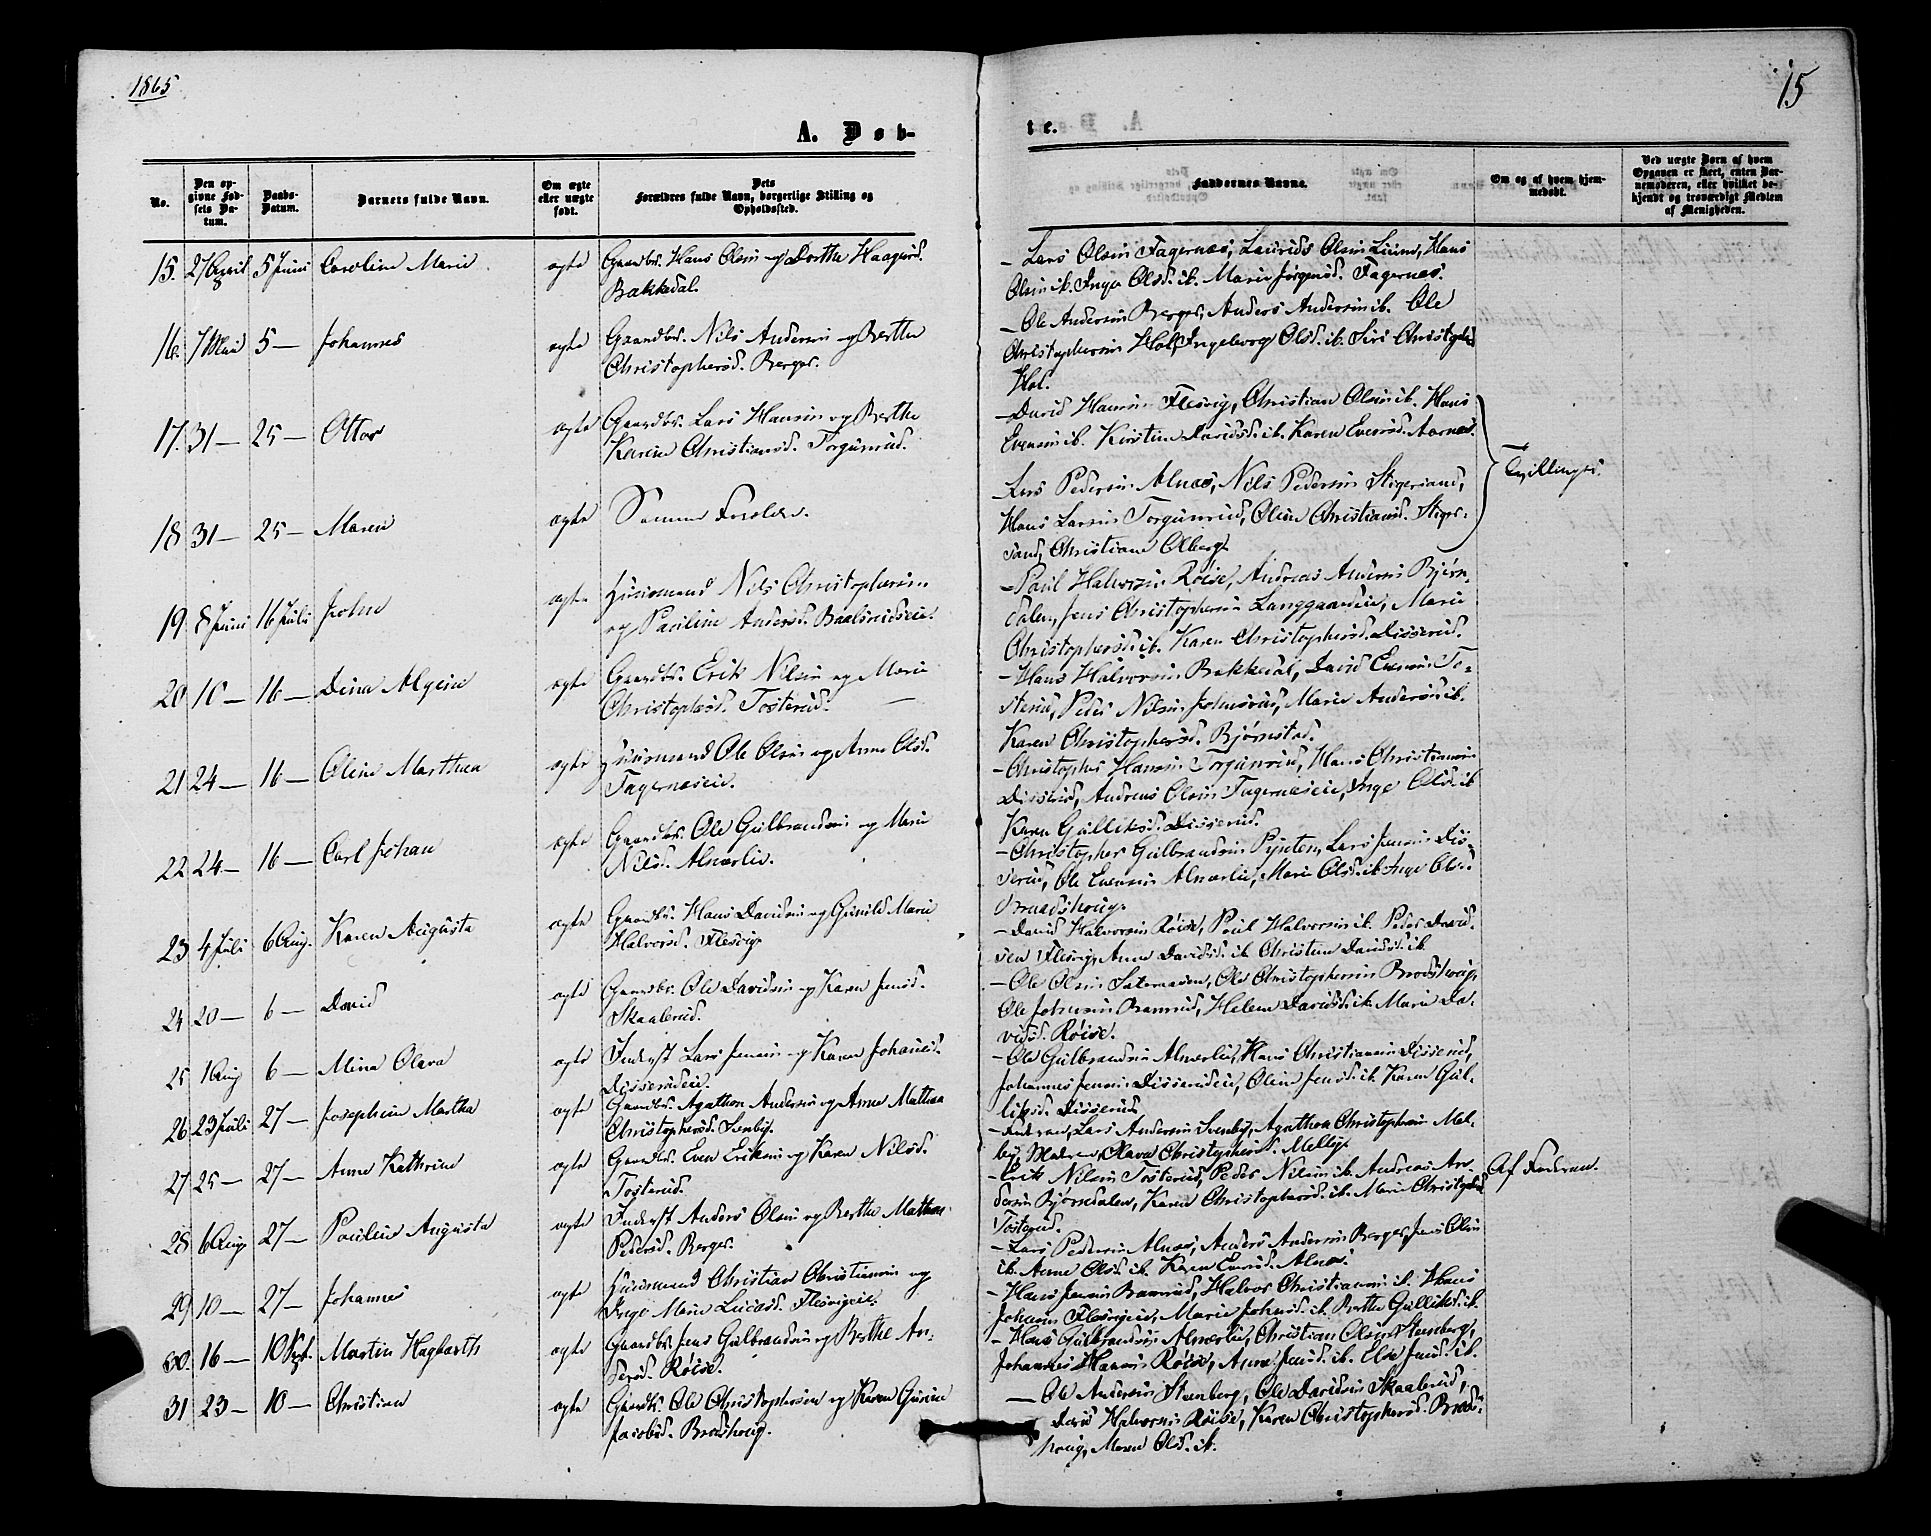 1865
15
A. Døb-
te.
No.
Den opgivne Fødsels Datum.
Daabs-Datum.
Barnets fulde Navn.
Om ægte eller uægte født.
Dets Forældres fulde Navn, borgerlige Stilling og Opholdssted.
Faddernes Navne.
Om og af hvem hjemmedøbt.
Ved uægte Børn af hvem Opgaven er skeet, enten Barnemoderen, eller hvilket bekjendt og troværdigt Medlem af Menigheden.
15. 27 April 5 Juni Caroline Marie ægte Gaardbr. Hans Olsen og Dorthe Haagensd.
Bakkedal.
– Lars Olsen Fagernæs, Laurids Olsen Hans
Olsen ib. Inger Olsd. ib. Marie Jørgensd. Fagernæs.
16. 7 Mai 5 – Johannes ægte Gaardbr. Nils Andersen og Berthe
Christophersd. Berger.
– Ole Andersen Berger, Anders Andersen ib. Ole
Christophersen Hol, Ingeborg Olsd. ib. Siri Christophersd
Hol.
17. 31 – 25 – Otto ægte Gaardbr. Lars Hansen og Berthe
Karine Christiansd. Torgunrud.
– David Hansen Flesvig, Christian Olsen ib. Hans
Evensen ib. Kirstine Davidsd. ib. Karen Evensd. Aarnæs.
Tvillinger.
18 31 – 25 – Maren ægte Samme Forældre.
Lars Pedersen Alnæs, Nils Pedersen Stigersand,
Hans Larsen Torgunrud, Oline Christiansd. Stiger-
sand, Christiane Olberg.
19. 8 Juni 16 Juli Johan ægte Huusmand Nils Christophersen
og Pauline Andersd. Baalsrudeie.
– Paul Halvorsen Røise, Andreas Andersen Bjørn-
dalen, Jens Christophersen Langgaardeie, Marie
Christophersd. ib. Karen Christophersd. Disserud.
20 10 – 16 – Dina Algine ægte Gaardbr. Erik Nilsen og Marie
Christophersd. Tosterud.
– Hans Halvorsen Bakkedal, David Evensen To-
sterud, Peder Nilsen Johnsrud, Marie Andersd. ib.
Karen Christophersd. Bjørnstad.
21 24 – 16 – Oline Marthea ægte Huusmand Ole Olsen og Anne Olsd.
Fagernæseie.
– Christopher Hansen Torgunrud, Hans Christiansen
Disserud, Andreas Olsen Fagernæseie, Inge Olsd. ib
Karen Gulliksd. Disserud.
22 24 – 16 – Carl Johan ægte Gaardbr. Ole Gulbrandsen og Marie
Nilsd. Alnærlie.
– Christopher Gulbrandsen Pynten, Lars Jensen Dis-
serud, Ole Evensen Alnærlie, Marie Olsd. ib. Inge Olsd.
Braadshoug.
23 4 Juli 6 Aug. Karen Augusta ægte Gaardbr. Hans Davidsen og Gunild Marie
Halvorsd. Flesvig.
– David Halvorsen Røise, Paul Halvorsen ib. Peder David-
sen Flesvig, Anne Davidsd. ib Christine Davidsd. ib.
24 20 – 6 – David ægte Gaardbr. Ole Davidsen og Karen Jensd.
Skaalerud.
– Ole Olsen Sætermoen, Ole Christophersen Braadshoug,
Ole Johnsen Ramrud, Helene Davidsd. ib. Marie Da-
vidsd. Røise.
25 1 Aug 6 – Mina Olava ægte Inderst Lars Jensen og Karen Johannesd.
Disserudeie.
– Ole Gulbrandsen Alnærlie, Hans Christiansen Disserud,
Johannes Jensen Disserudeie, Oline Jensd. ib. Karen Gul-
liksd. Disserud
26 23 Juli 27 – Josephine Martha ægte Gaardbr. Agathon Andersen og Anne Mathea
Christophersd. Svenby.
– Faderen, Lars Andersen Svenby, Agathon Christophersen Mel-
by, Moderen, Olava Christophersd. Melby.
27 25 – 27 – Anne Kathrine ægte Gaardbr. Even Eriksen og Karen Nilsd.
Tosterud.
– Erik Nilsen Tosterud, Peder Nilsen ib. Andreas An-
dersen Bjørndalen, Karen Christophersd. ib. Marie Christophersd
Tosterud.
Af Faderen.
28 6 Aug 27 – Pauline Augusta ægte Inderst Anders Olsen og Berthe Mathea
Pedersd. Berger.
– Lars Pedersen Alnæs, Anders Andersen Berger, Jens Olsen
ib. Anne Olsd. ib. Karen Evensd. Alnæs.
29 10 – 27 – Johannes ægte Huusmand Christian Christiansen og
Inge Marie Lucasd. Flesvigeie.
– Hans Jensen Ramrud, Halvor Christiansen ib. Hans
Johnsen Flesvigeie, Marie Johnsd. ib. Berthe Gulliksd. ib.
30. 16 – 10 Sept. Martin Hagbarth ægte Gaardbr. Jens Gulbrandsen og Berthe An-
dersd. Røise.
– Hans Gulbrandsen Alnærlie, Christian Olsen Steenberg,
Johannes Hansen Røise, Anne Jensd. ib. Else Jensd. ib.
31 23 – 10 – Christian ægte Gaardbr. Ole Christophersen og Karen Gurine
Jacobsd. Braadshoug.
– Ole Andersen Steenberg, Ole Davidsen Skaalerud,
David Halvorsen Røise, Karen Christophersd. Braads-
houg, Maren Olsd. ib.